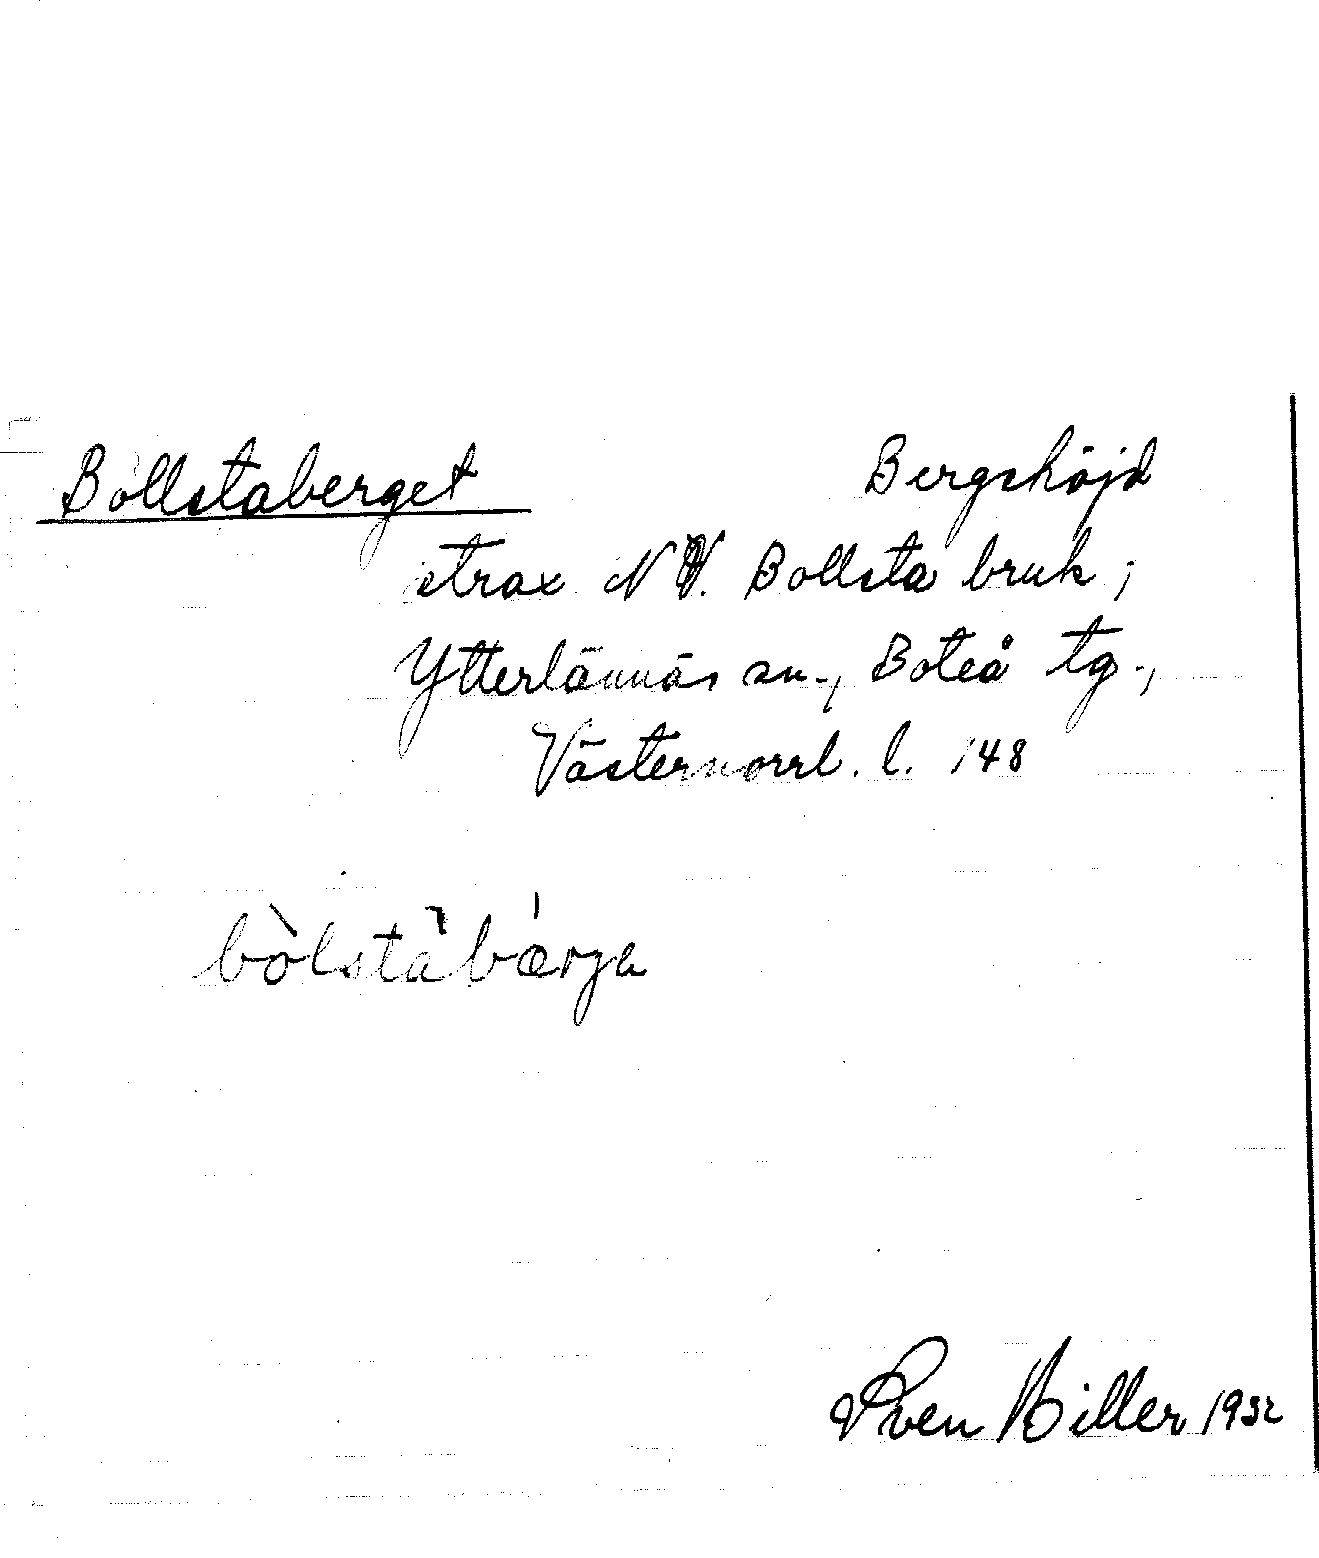 Bollstaberget Bergshöjd
strax NV. Bollsta bruk;
Ytterlännäs sn., Boteå tg.,
Västernorrl. l. 148
bòlstàbǽrja
Sven Hiller 1932